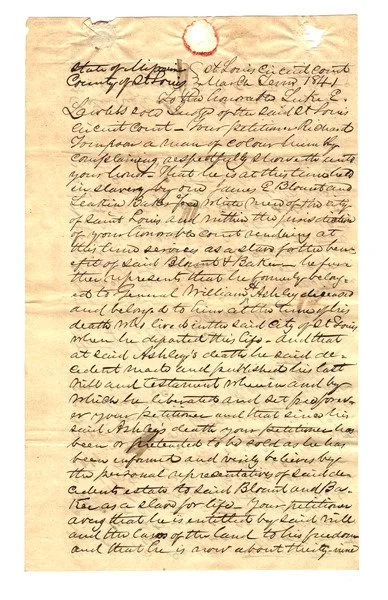 State of Missouri } St Louis Circuit Court
County of St Louis } March Term 1841
To the Honorable Luke E.
Lawless sole Judge of the said St Louis
Circuit Court – Your petitioner Richard
Thompson a man of colour humbly
complaining respectfully showeth unto
your honor – That he is at this time held
in slavery by one James E Blount and
Baker free white men of the city
of Saint Louis and within the jurisdiction
of your honorable court rendering at
this time services as a slave for the bene
fit of said Blount & Baker – he fur
ther represents that he formerly belong
ed to General William Ashley deceased
and belonged to him at the time of his
death who lived in the said city of St Louis
when he departed this life – and that
at said Ashley's death he said de-
cedent made and published his last
Will and testament wherein and by
which he liberated and set free
or your petitioner and that since his
said Ashley's death your petitioner has
been or pretended to be sold as he has
been informed and verily believes by
the personal representative of said de
cedents estate to said Blount and Ba-
ker as a slave for life – Your petitioner
avers that he is entitled by said Will
and the laws of the land to his freedom
and that he is now about thirty-nine